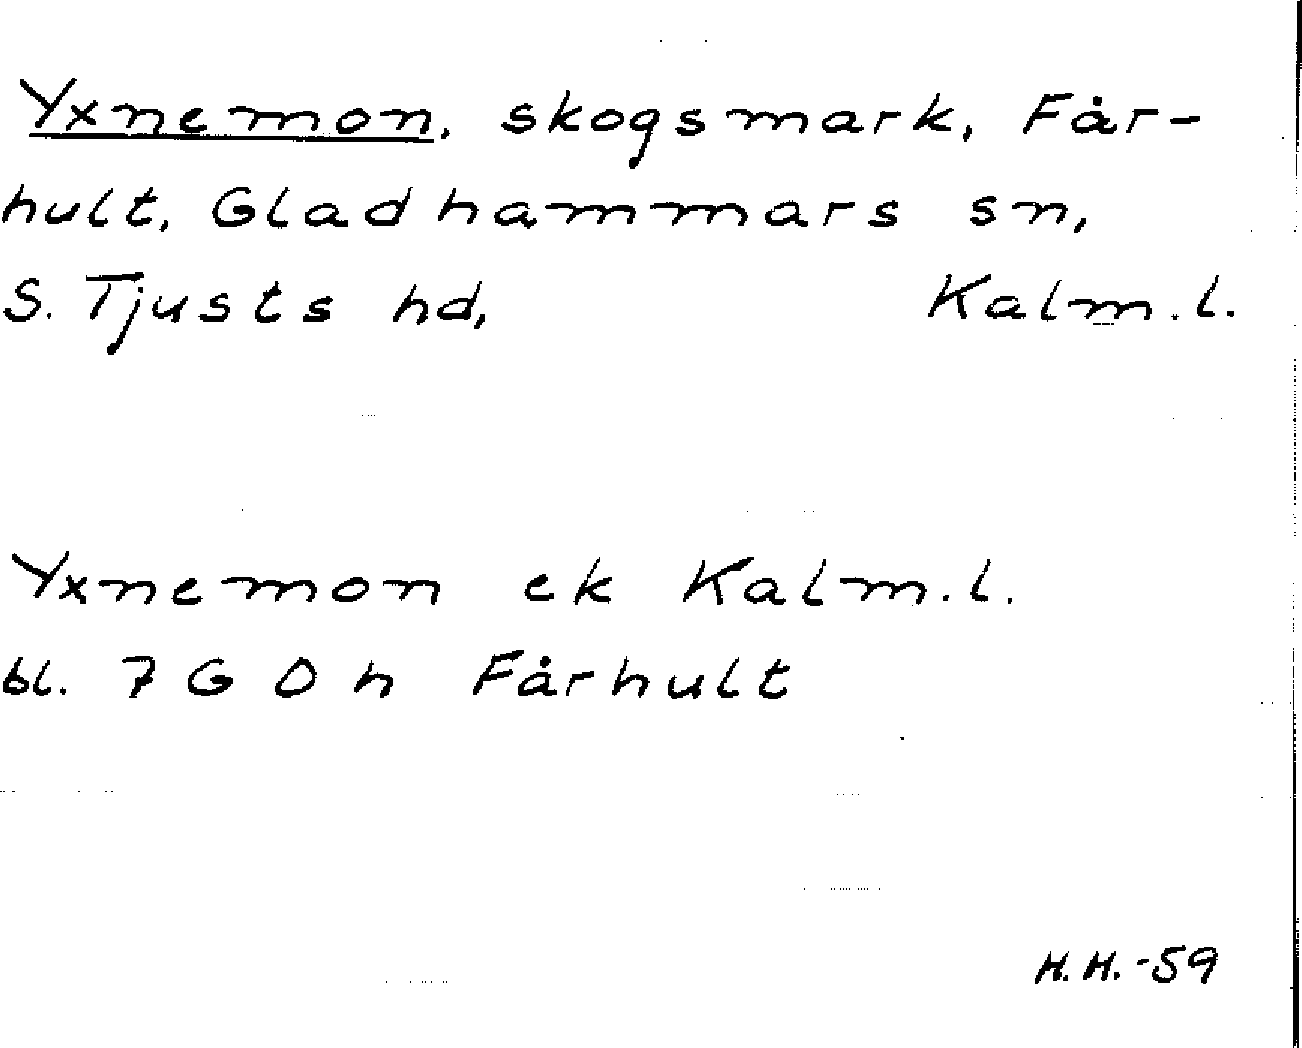 Yxnemon, skogsmark, Får-
hult, Gladhammars sn,
S. Tjusts hd, Kalm. l.
Yxnemon ek Kalm. l.
bl. 7 G 0 h Fårhult
H. H. -59